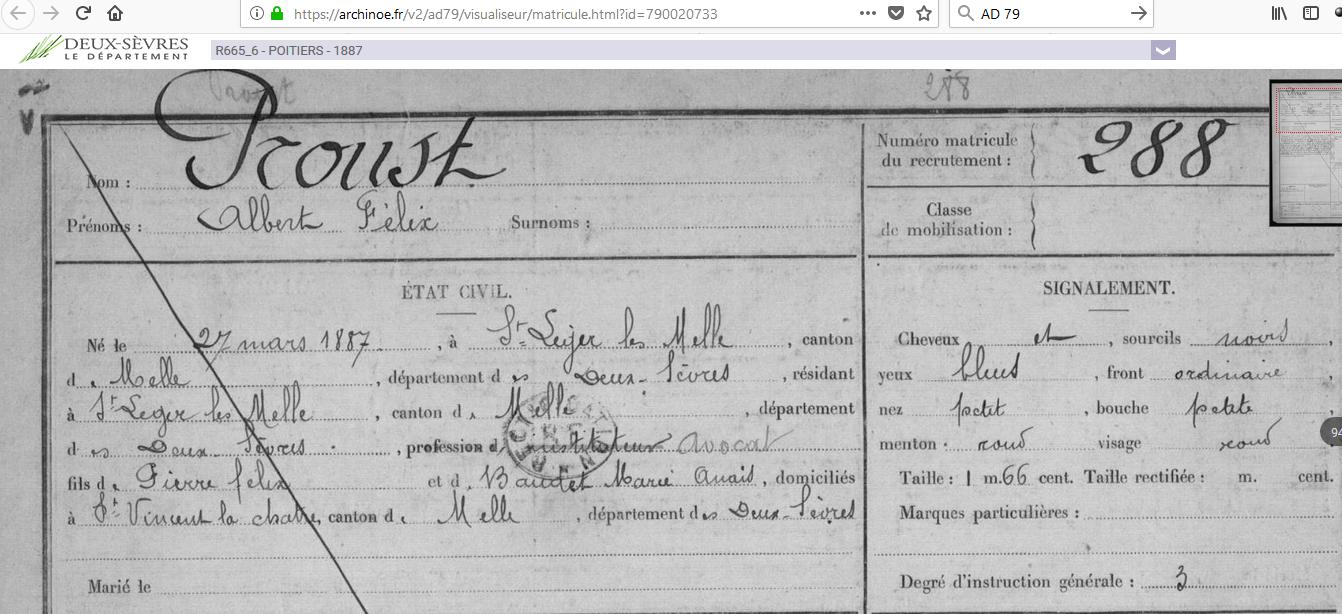 https://archinoe.fr/v2/ad79/visualiseur/matricule.html?id=790020733
AD 79
DEUX-SÈVRES
LE DÉPARTEMENT
R665_6 - POITIERS - 1887
Proust 288
Nom : Proust
Prénoms : Albert Félix Surnoms :
Numéro matricule du recrutement : 288
Classe de mobilisation :
ÉTAT CIVIL.
Né le 27 mars 1887, à St Leger les Melle, canton
de Melle, département des Deux-Sèvres, résidant
à St Leger les Melle, canton de Melle, département
des Deux Sèvres, profession d'instituteur avocat
fils de Pierre félix et de Baudet Marie Anais, domiciliés
à St Vincent la chatre, canton de Melle, département des Deux-Sèvres
Marié le
SIGNALEMENT.
Cheveux et, sourcils noirs,
yeux bleus, front ordinaire,
nez petit, bouche petite
menton rond visage rond
Taille : 1 m. 66 cent. Taille rectifiée : m. cent.
Marques particulières :
Degré d'instruction générale : 3
94